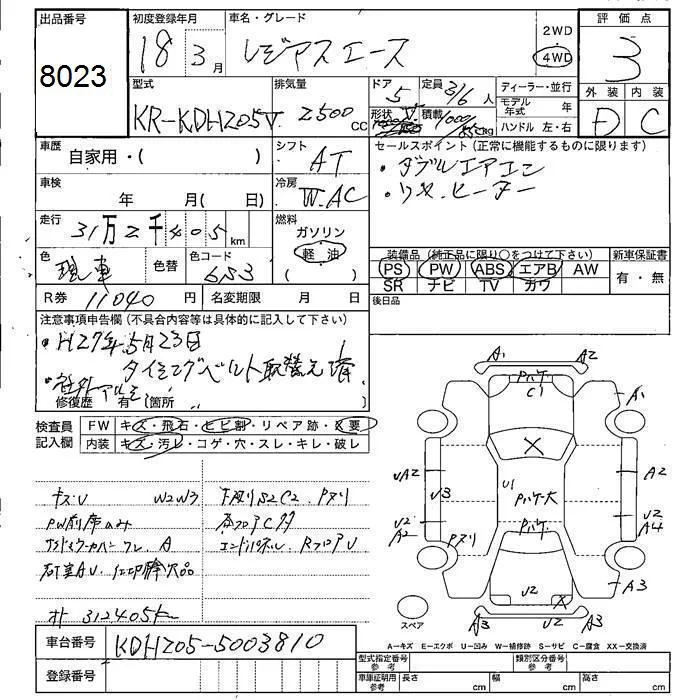 出品番号 初度登録年月 車名・グレード 評価点
8023 18年3月 レジアスエース 2WD 4WD 3
型式 排気量 ドア 定員 ディーラー・並行 外装 内装
KR-KDH205V 2500 CC 5 3/6人 モデル年式 年 D C
形状 V 積載 1000/850kg ハンドル 左・右
車歴 自家用・( ) シフト AT セールスポイント(正常に機能するものに限ります)
・ダブルエアコン
・リヤヒーター
車検 年 月( 日) 冷房 W.AC
走行 31万2千405km 燃料 ガソリン 軽油 ( )
色 色替 色コード 6S3
装備品(純正品に限り○をつけて下さい) 新車保証書
PS PW ABS エアB AW 有・無
SR ナビ TV カワ
R券 11040円 名変期限 月 日 後日品
注意事項申告欄(不具合内容等は具体的に記入して下さい)
・H27年5月23日
タイミングベルト取替え済
・社外アルミ
修復歴 有(箇所 )
検査員記入欄 FW キズ・飛石・ヒビ割・リペア跡・X要
内装 キズ・汚レ・コゲ・穴・スレ・キレ・破レ
キズU W2W3 下廻りS2C2 Pヌリ
PW前席のみ
エンドパネル、RフロアU
オドメーター 312405km
A1 A2
Pハゲ
C1
A1
UA2 U3 U1 A2
Pハゲ大
U2 A2 U2 A4
Pヌリ Pハゲ
A3
U2 X
A3 U2 A3
スペア
A-キズ E-エクボ U-凹み W-補修跡 S-サビ C-腐食 XX-交換済
車台番号 KDH205-5003810
型式指定番号参考 類別区分番号参考
登録番号
車庫証明用参考 長さ cm 幅 cm 高さ cm